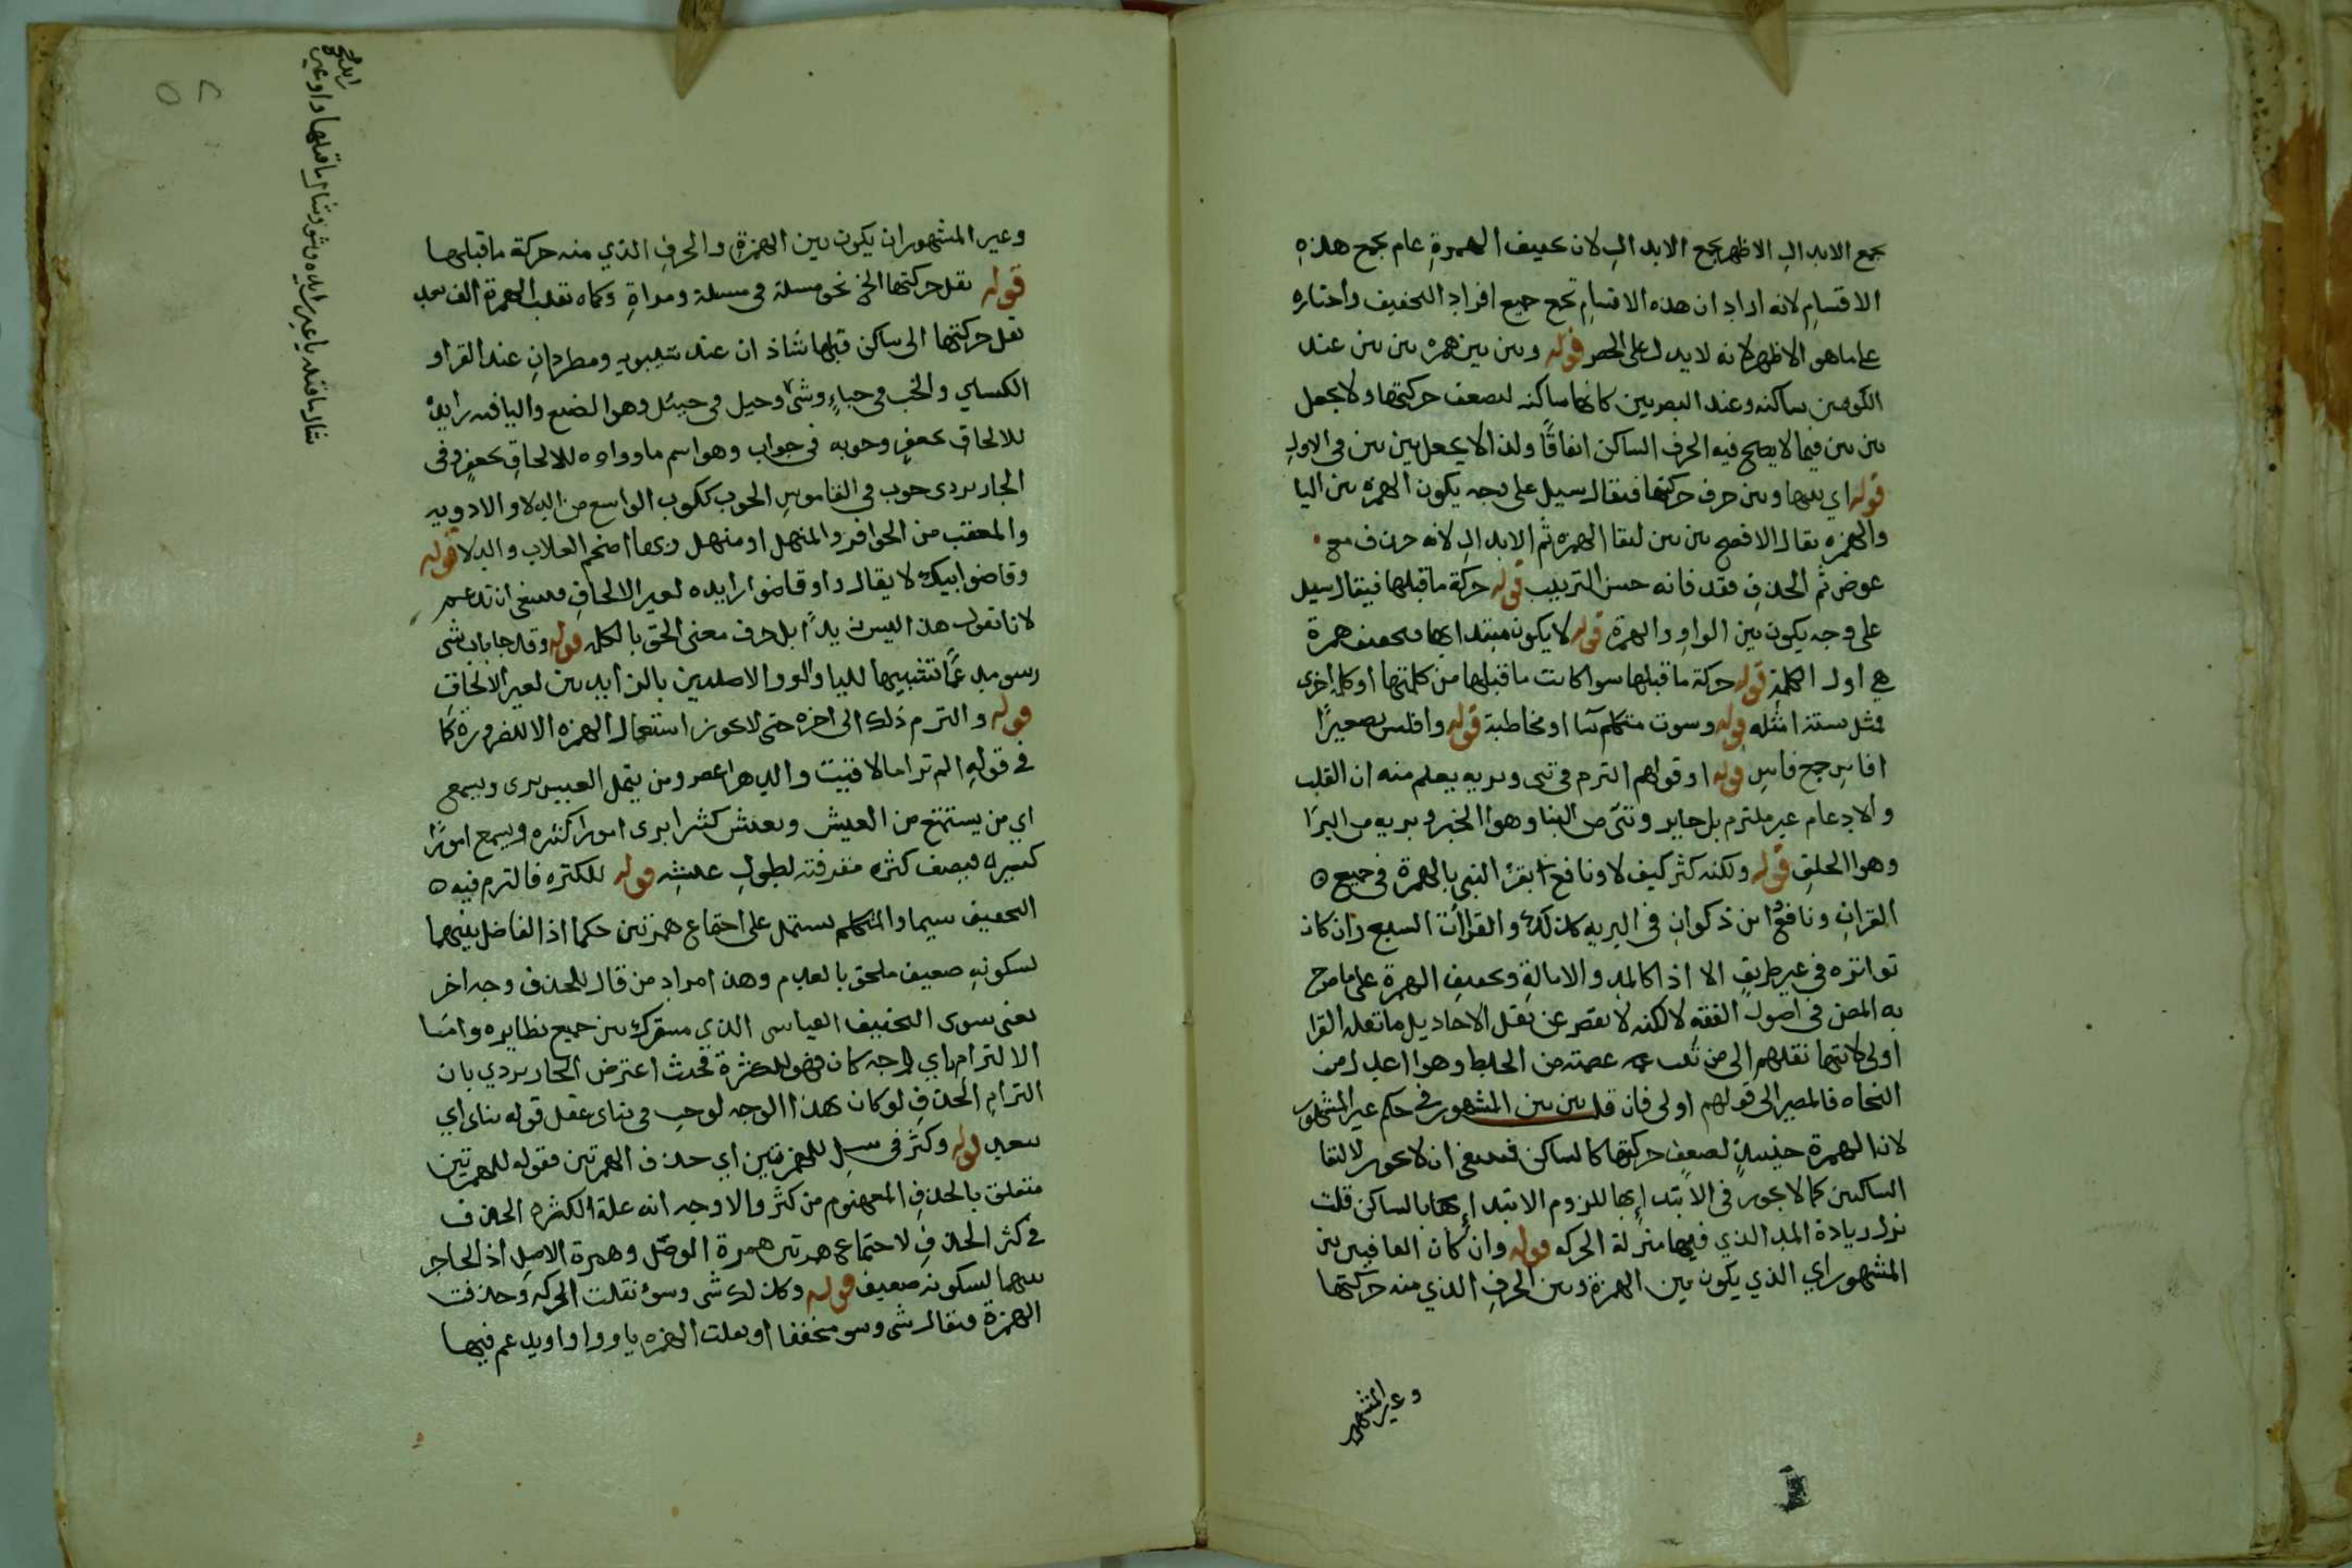 يجمع الابدال الاظهر يجمع الابدال لان تخفيف الهمزة عام يجمع هذه
الاقسام لانه اراد ان هذه الاقسام تجمع جميع افراد التخفيف واختاره
على ما هو الاظهر لانه لا يدل على الحصر قوله وبين بين همزه بين بين عند
الكوفيين ساكنه وعند البصريين كانها ساكنه لضعف حركتها ولا يجعل
بين بين فيما لا يصح فيه الحرف الساكن اتفاقًا ولذا لا يجعل بين بين في الاول
قوله اي بينها وبين حرف حركتها فيقال سيل على وجه يكون الهمزه بين اليا
والهمزه يقال الافصح بين بين لبقا الهمزه ثم الابدال لانه حذف مع
عوض ثم الحذف فقد فانه حسن الترتيب قوله حركة ما قبلها فيقال سيل
على وجه يكون بين الواو والهمزة قوله لا يكون مبتدا بها تخفيف همزة
هي اول الكلمة قوله حركة ما قبلها سوا كانت ما قبلها من كلمتها او كلمة اخرى
مثل قوله وسوت متكلم او مخاطبة قوله وافلس تصغير
افاس جمع فاس قوله او قولهم التزم في نبي وبريه يعلم منه ان القلب
والادغام غير ملتزم بل جايز ونبي من النبا وهو الخبر وبريه من البرا
وهو الخلق قوله ولكنه كثر كيف لا ونافع يقرا النبي بالهمزة في جميع
القران ونافع وابن ذكوان في البريه كذلك والقراات السبع وان كان
تواتره في غير طريق الاذا كالمد والامالة وتخفيف الهمزة على ما صرح
به المصنف في اصول الفقه لكنه لا يقصر عن نقل الاحاد بل ما نقله القرا
اولى لانتها نقلهم الى من ثبت عصمته من الغلط وهو اعدل من
النحاه فالمصير الى قولهم اولى فان قلت بين بين المشهور في حكم غير المشهور
لان الهمزة حينيذ لضعف حركتها كالساكن فينبغي ان لا يجوز لالتقا
الساكنين كما لا يجوز في الابتدا بها للزوم الابتدا بالساكن قلت
نزل زيادة المد الذي فيها منزلة الحركه قوله وان كان الفا فبين بين
المشهور اي الذي يكون بين الهمزة وبين الحرف الذي منه حركتها
وغير المشهور
وغير المشهور ان يكون بين الهمزة والحرف الذي منه حركة ما قبلها
قوله نقل حركتها الخ نحو مسلة في مسئلة ومراة وكماه تقلب الهمزة الف بعد
نقل حركتها الى ساكن قبلها شاذان عند سيبويه ومطردان عند الفرا و
الكسائي والخب في خباء وشي وجيل في جيئل وهو الضبع واليا فيه زايدة
للالحاق بجعفر وحوبه في حواب وهو اسم ما وواوه للالحاق بجعفر وفي
الجاربردي حوب في القاموس الحوب ككوكب الواسع من الدلا والاودية
والمقعب من الحوافر والمنهل او منهل وبها اضخم العلاب والدلا قوله
وقاضوا ابيك لا يقال واو قاضوا زايده لغير الالحاق فينبغي ان تدغم
لانا نقول هذا ليس زيدًا بل حرف معنى الحق بالكلمه قوله وقد جا باب شي
وسو مدغمًا تشبيها لليا والواو الاصليين بالزايدين لغير الالحاق
قوله والتزم ذلك الى اخره حتى لا يجوز استعمال الهمزه الا للضرورة كما
في قوله الم تر ما لاقيت والدهر اعصر ومن يتمل العيش يرى ويسمع
اي من يستمتع من العيش ويعش كثيرا يرى امورا كثيره ويسمع امورًا
كثيره فيصف كثرة معرفته لطول عيشه قوله للكثره فالتزم فيه
التخفيف سيما والمتكلم يستمل على اجتماع همزتين حكما اذ الفاصل بينهما
لسكونه ضعيف ملحق بالعدم وهذا مراد من قال للحذف وجه اخر
يعني سوى التخفيف القياسي الذي مشترك بين جميع نظايره واما
الالتزام باي وجه كان فهو للكثرة فحدث اعترض الجاربردي بان
التزام الحذف لو كان بهذا الوجه لوجب في ينأى عقل قوله ينأى اي
يبعد قوله وكثر في سل للهمزتين اي حذف الهمزتين فقوله للهمزتين
متعلق بالحذف المفهوم من كثر والاوجه انه علة لكثرة الحذف
في كثر الحذف لاجتماع همزتين همزة الوصل وهمزة الاصل اذ الحاجز
بينهما لسكونه ضعيف قوله وكذلك شي وسو نقلت الحركه وحذفت
الهمزة فيقال شي وسو مخففا او قلبت الهمزه يا وواوا ويدغم فيها